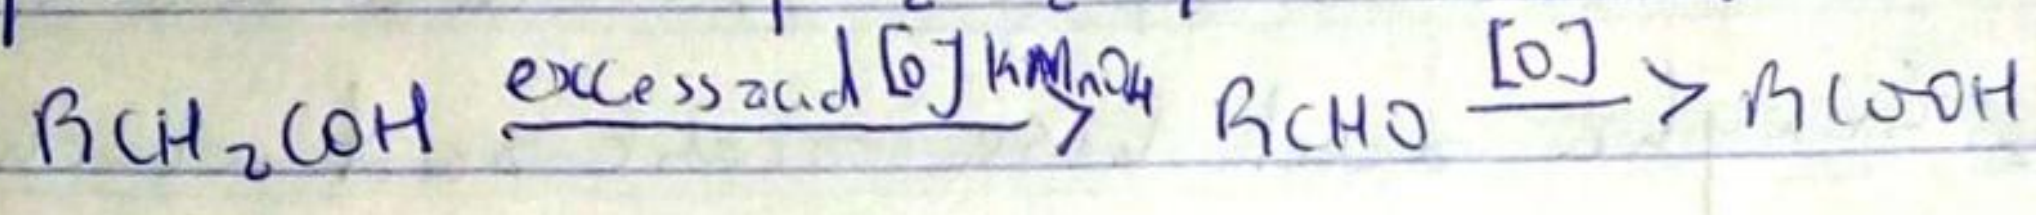 RCH₂COH excess acid [O] KMnO4 → RCHO [O] → RCOOH